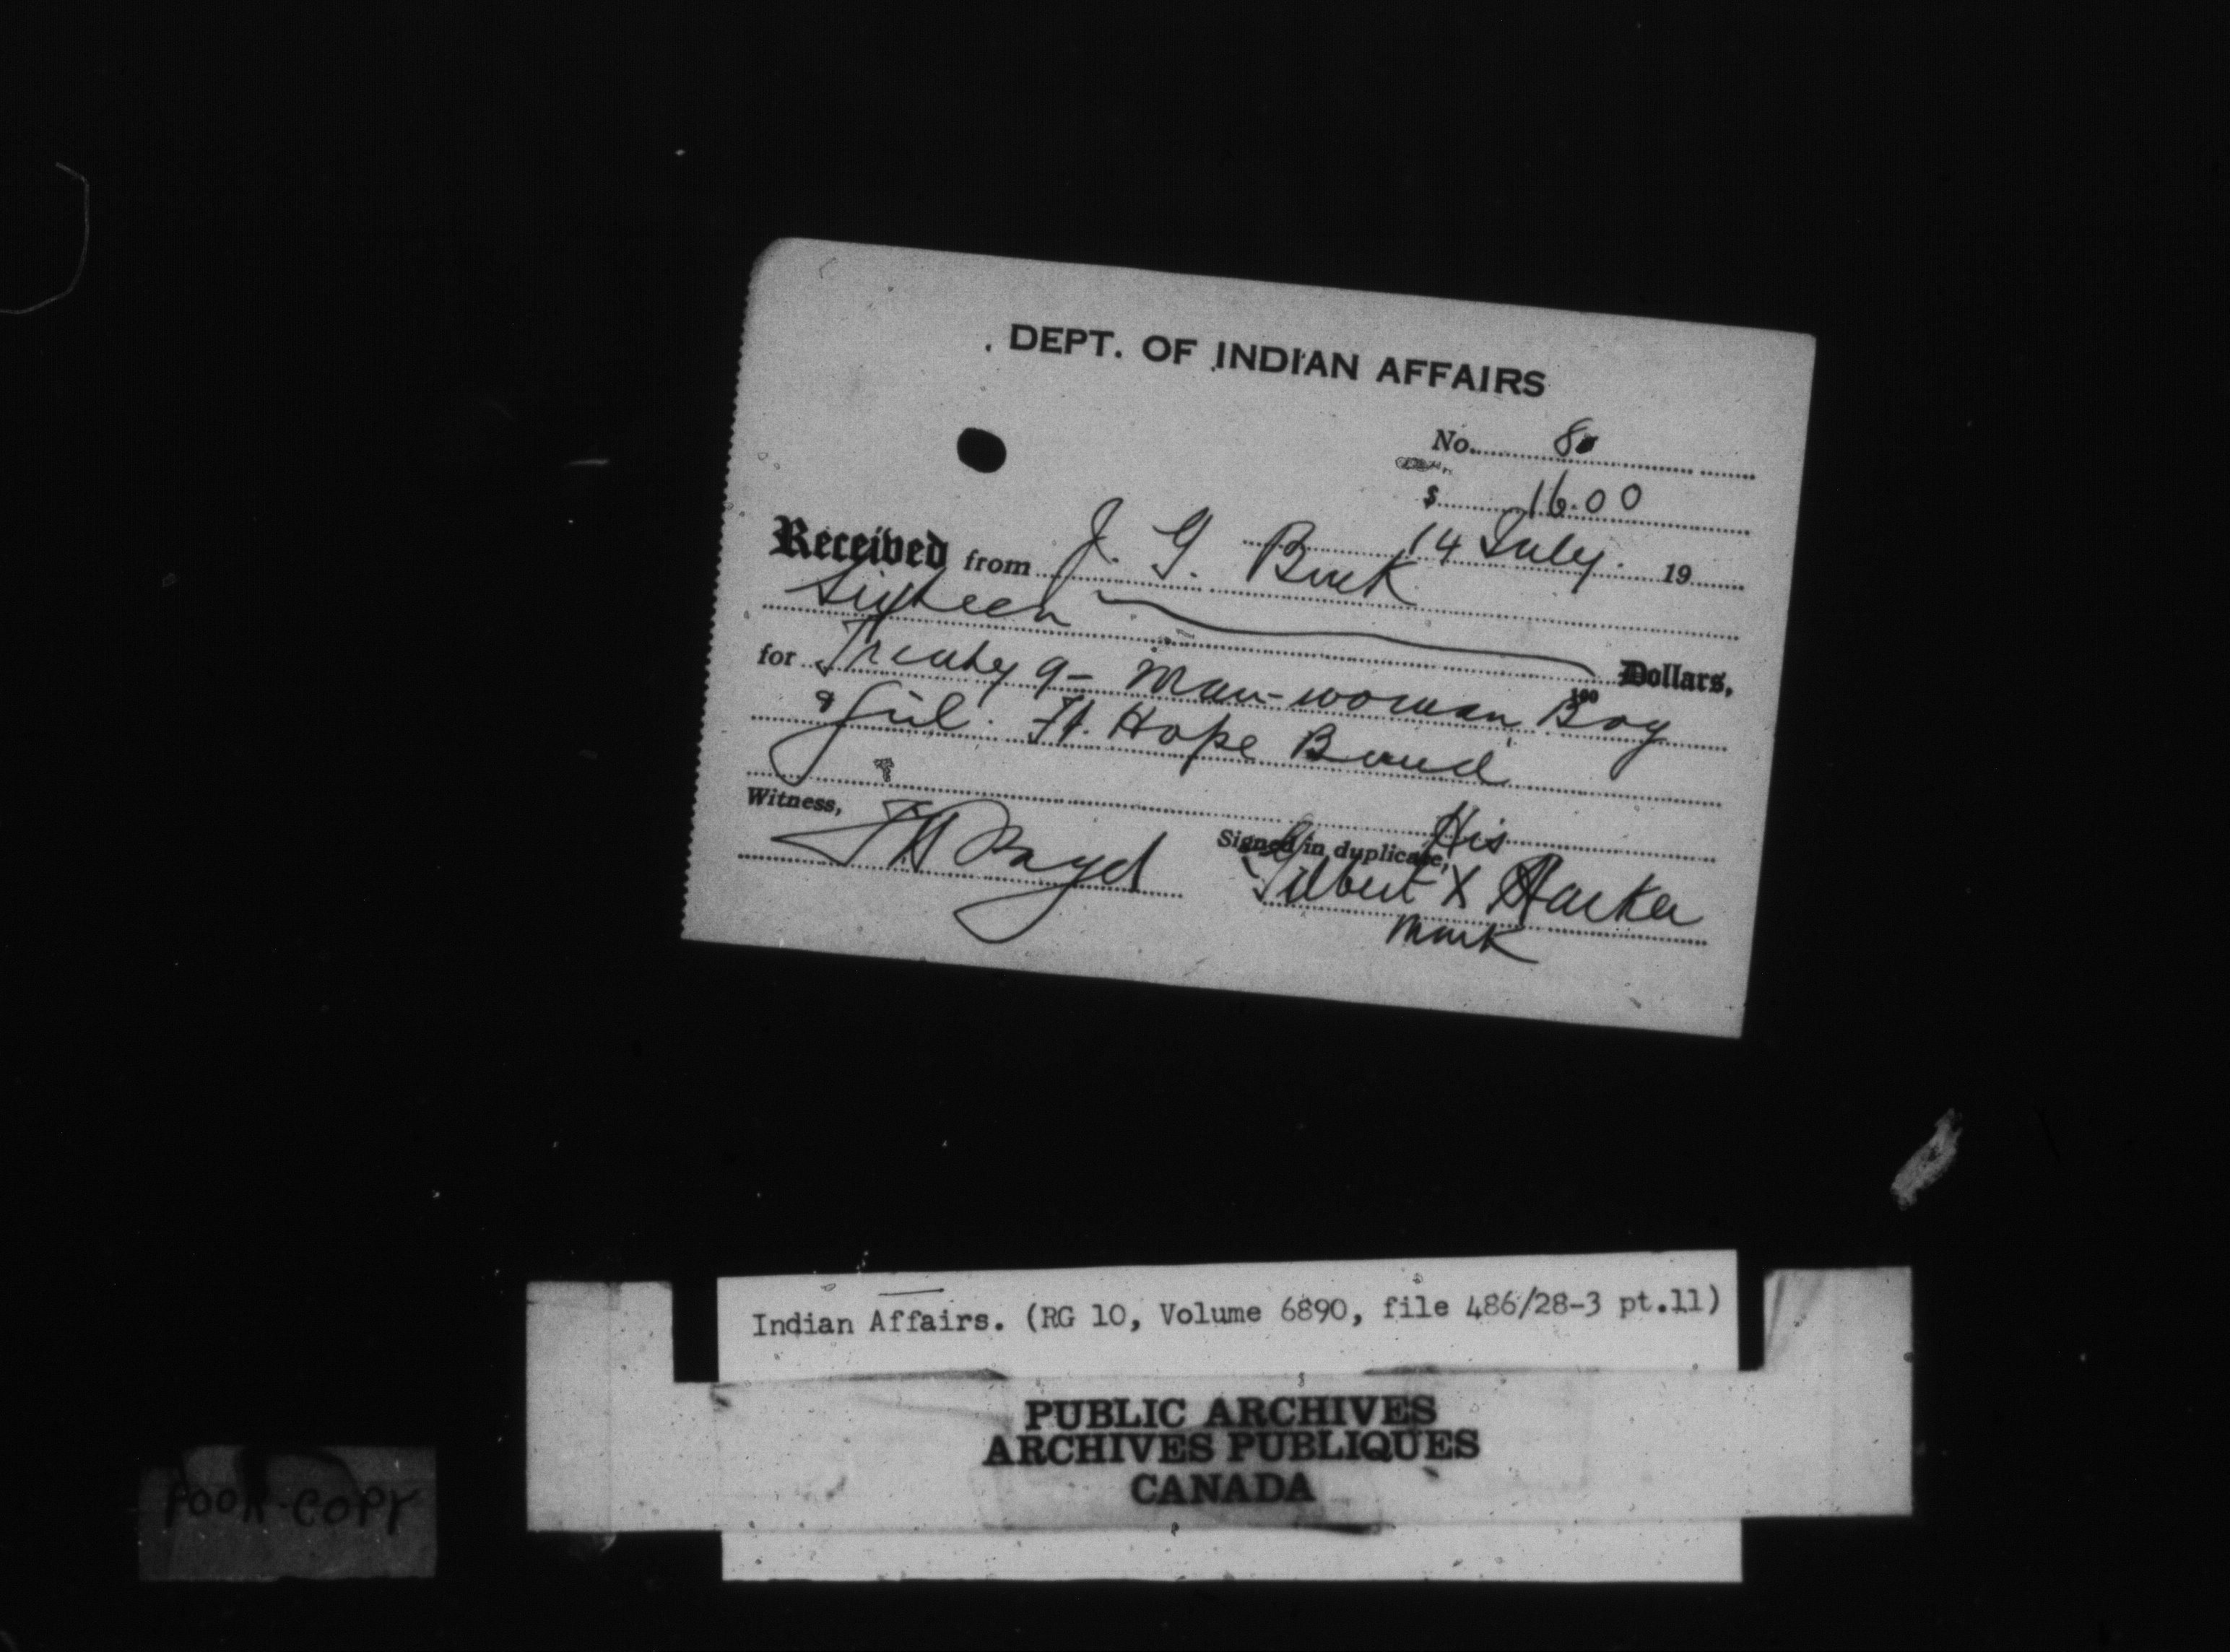 DEPT. OF INDIAN AFFAIRS
No. 80
$ 16.00
14 July. 19
Received from J. G. Burk
Sixteen Dollars,
100
for Treaty 9 - Man - woman, Boy
& Girl. Ft. Hope Band
Witness,
His
Signed in duplicate,
Boyd
Gilbert X
Mark
Indian Affairs. (RG 10, Volume 6890, file 486/28-3 pt.11)
PUBLIC ARCHIVES
ARCHIVES PUBLIQUES
CANADA
POOR COPY